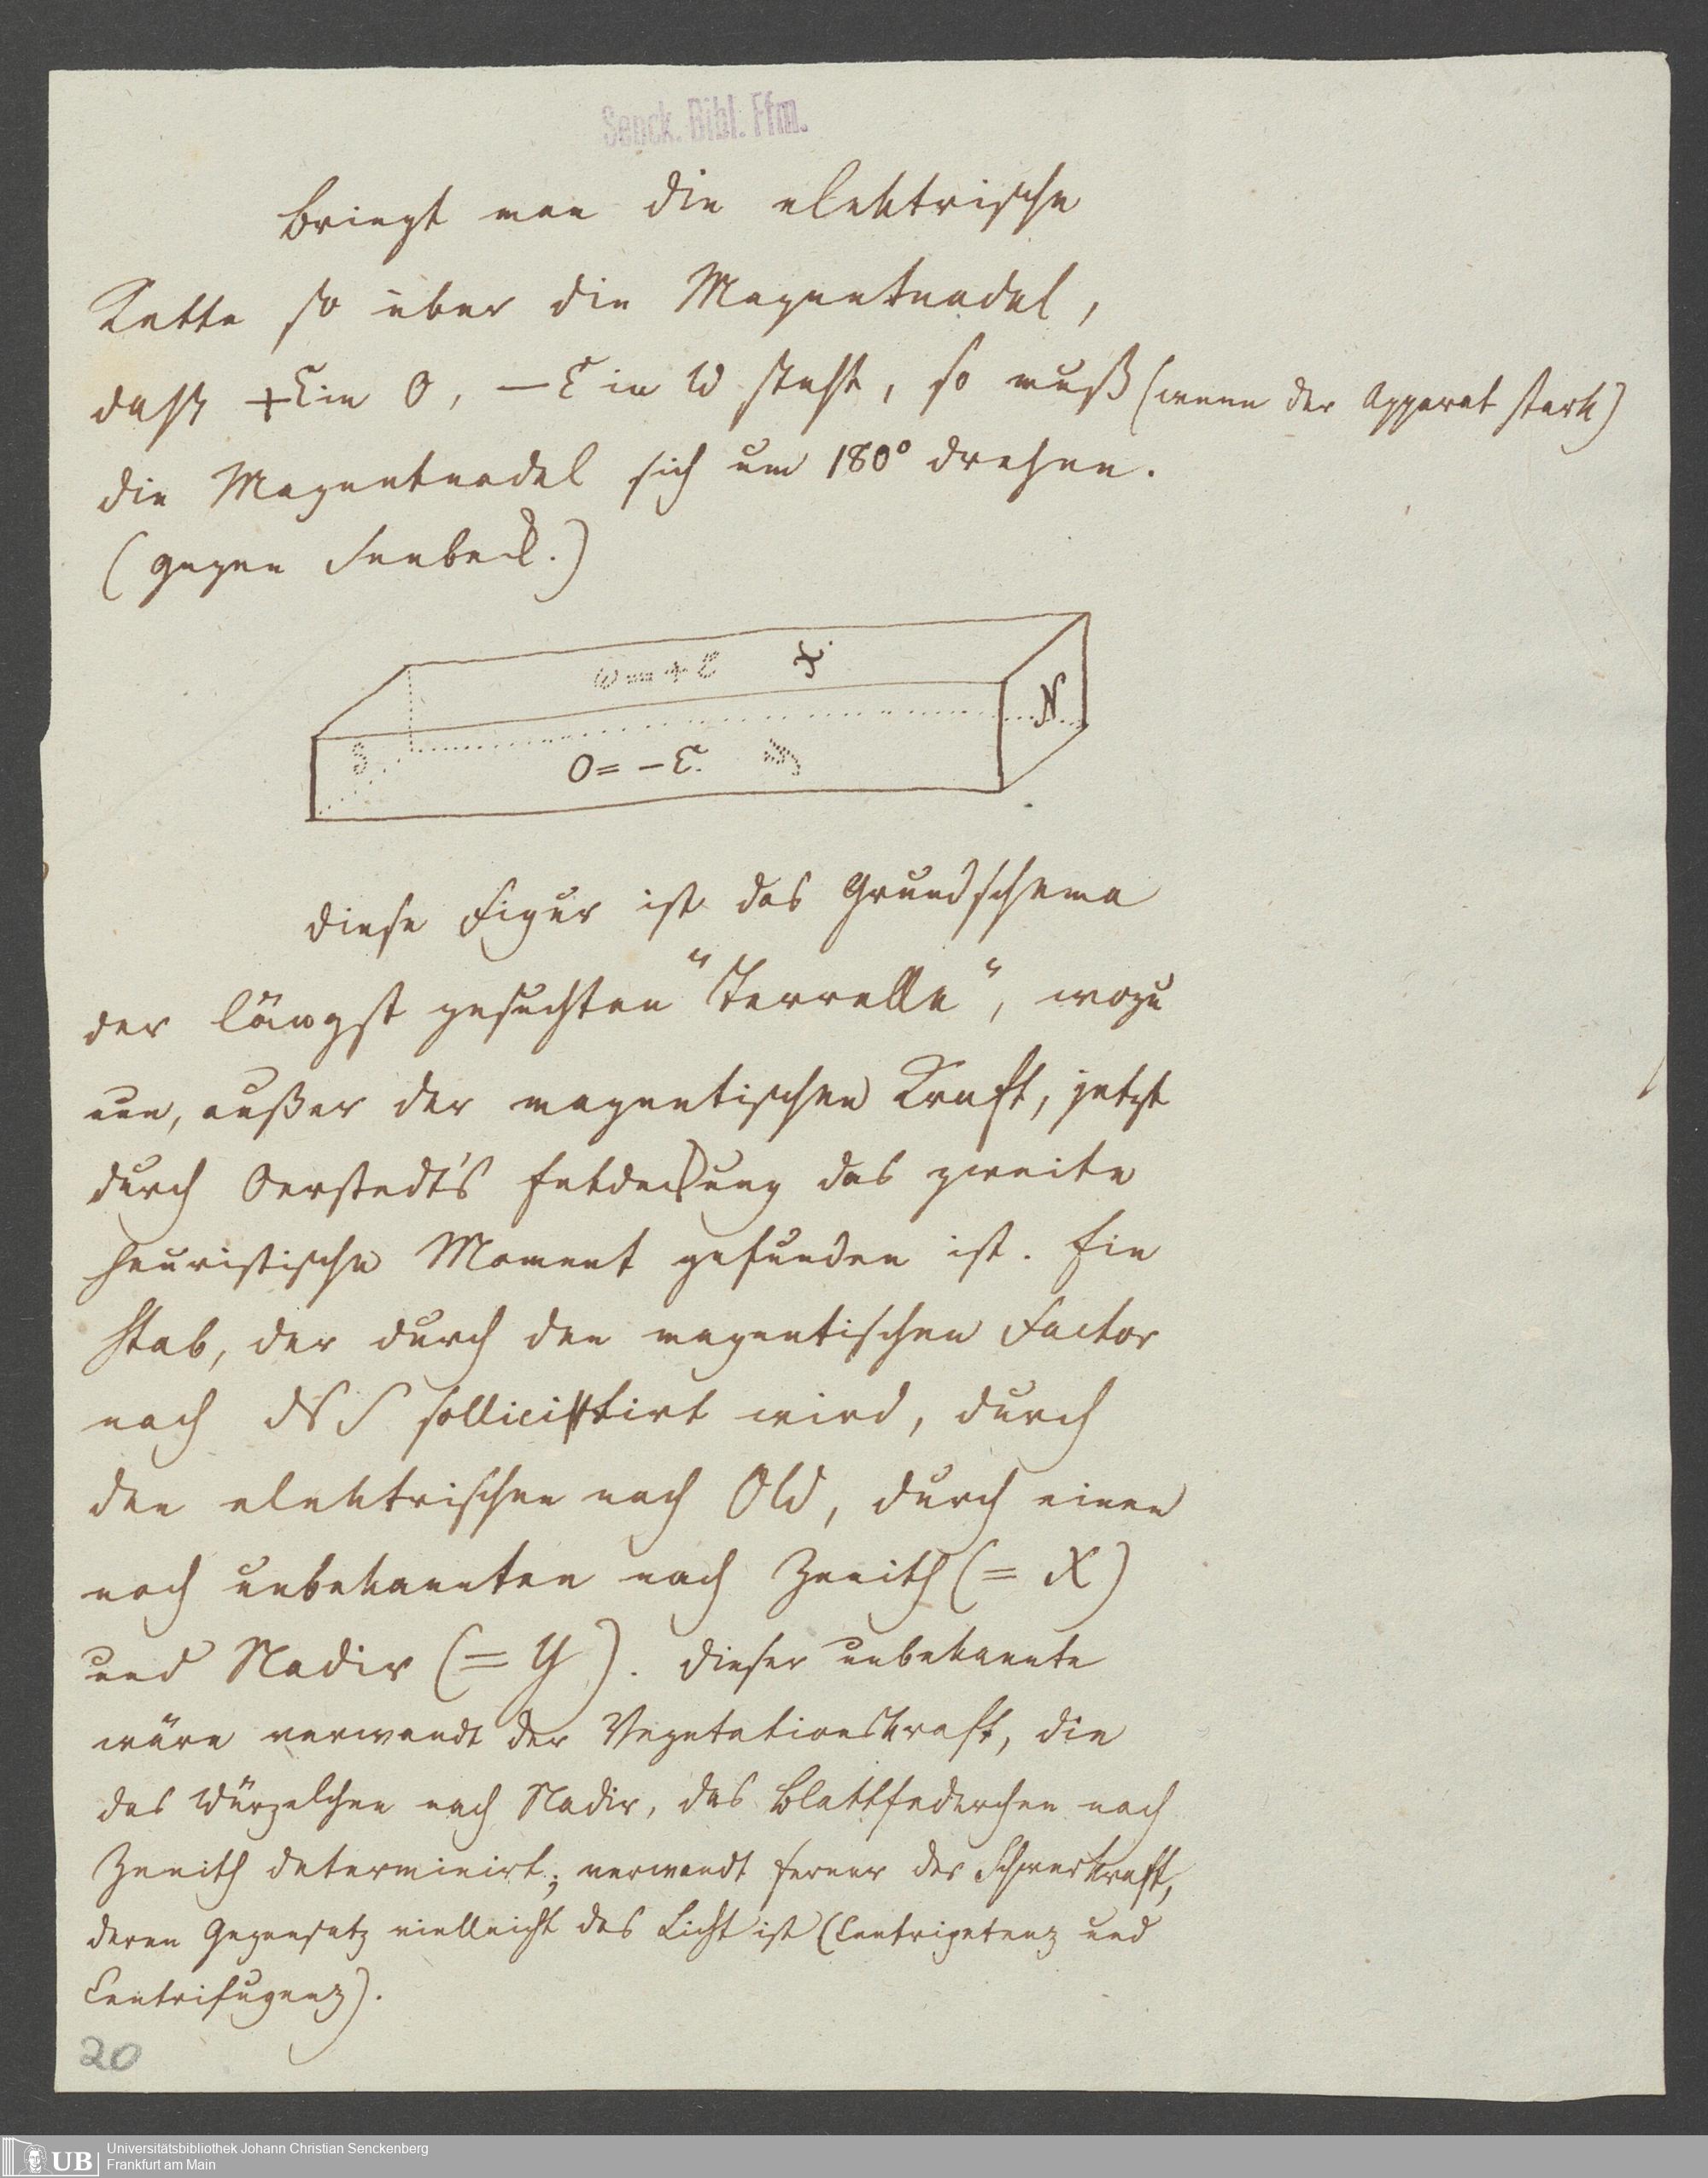 Senck. Bibl. Ffm.
Bringt man die elektrische
Kette so über die Magnetnadel,
daß +E in O, —E in W steht, so muß (wenn der Apparat stark)
die Magnetnadel sich um 180° drehen.
(gegen Seebeck.)
W = + E X
N
S O = — E. y
Diese Figur ist das Grundschema
der längst gesuchten "Terrelle", wozu
nun, außer der magnetischen Kraft, jetzt
durch Oerstedt's Entdeckung das zweite
heuristische Moment gefunden ist. Ein
Stab, der durch den magnetischen Factor
nach N S sollicitirt wird, durch
den elektrischen nach O W, durch einen
noch unbekannten nach Zenith (= X)
und Nadir (= Y). Dieser unbekannte
wäre verwandt der Vegetationskraft, die
das Würzelchen nach Nadir, das Blattfederchen nach
Zenith determinirt; verwandt ferner der Schwerkraft,
deren Gegensatz vielleicht das Licht ist (Centripetenz und
Centrifugenz).
20
UB Universitätsbibliothek Johann Christian Senckenberg
Frankfurt am Main